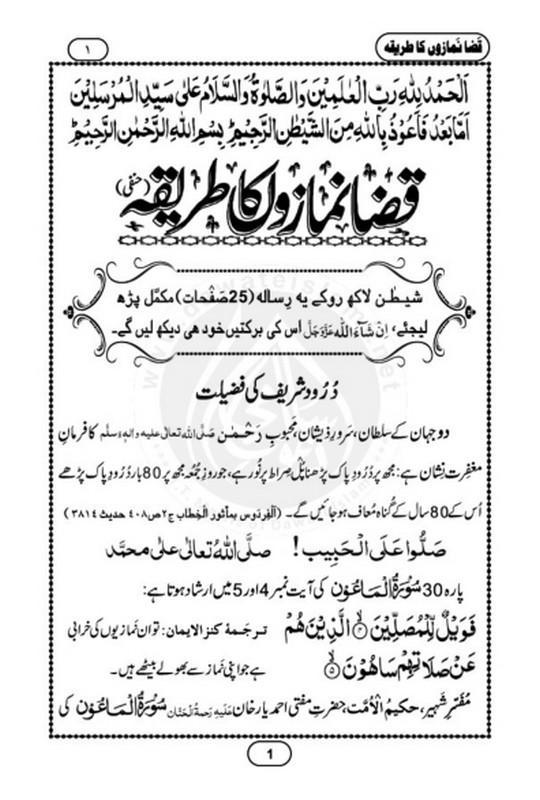 قضا نَمازوں کا طریقہ
۱
اَلْحَمْدُ لِلّٰہِ رَبِّ الْعٰلَمِیْنَ وَالصَّلٰوۃُ وَالسَّلَامُ عَلٰی سَیِّدِ الْمُرْسَلِیْنَ
اَمَّا بَعْدُ فَاَعُوْذُ بِاللّٰہِ مِنَ الشَّیْطٰنِ الرَّجِیْمِ ؕ بِسْمِ اللّٰہِ الرَّحْمٰنِ الرَّحِیْمِ ؕ
قضا نمازوں کا طریقہ (حنفی)
شیطٰن لاکھ روکے یہ رِسالہ (25 صَفْحات) مکمَّل پڑھ
لیجئے، اِنْ شَآءَ اللّٰہ عَزَّوَجَلَّ اس کی برکتیں خود ھی دیکھ لیں گے۔
دُرُود شریف کی فضیلت
دو جہان کے سلطان، سَرورِ ذیشان، محبوبِ رَحْمٰن صَلَّی اللہ تعالٰی علیہ والہٖ وسلَّم کا فرمانِ
مغفِرت نِشان ہے: مجھ پر دُرُودِ پاک پڑھنا پُلْ صِراط پر نُور ہے، جو روزِ جُمُعہ مجھ پر 80 بار دُرُودِ پاک پڑھے
اُس کے 80 سال کے گُناہ مُعاف ہو جائیں گے۔ (اَلْفِرْدَوْس بمأثور الْخِطاب ج۲ ص۴۰۸ حدیث ۳۸۱۴)
صَلُّوا عَلَی الْحَبِیب ! صلَّی اللہُ تعالٰی علٰی محمَّد
پارہ 30 سُوْرَۃُ الْمَاعُوْن کی آیت نمبر 4 اور 5 میں ارشاد ہوتا ہے:
فَوَیْلٌ لِّلْمُصَلِّیْنَ ۙ﴿۴﴾ الَّذِیْنَ هُمْ تَرجَمۂ کنز الایمان: تو ان نمازیوں کی خرابی
عَنْ صَلَاتِهِمْ سَاهُوْنَ ۙ﴿۵﴾ ہے جو اپنی نماز سے بھولے بیٹھے ہیں۔
مُفَسّرِ شہیر، حکیمُ الْاُمَّت، حضرتِ مفتی احمد یار خان عَلَیْہِ رَحمۃُ الْحَنَّان سُوْرَۃُ الْمَاعُوْن کی
1